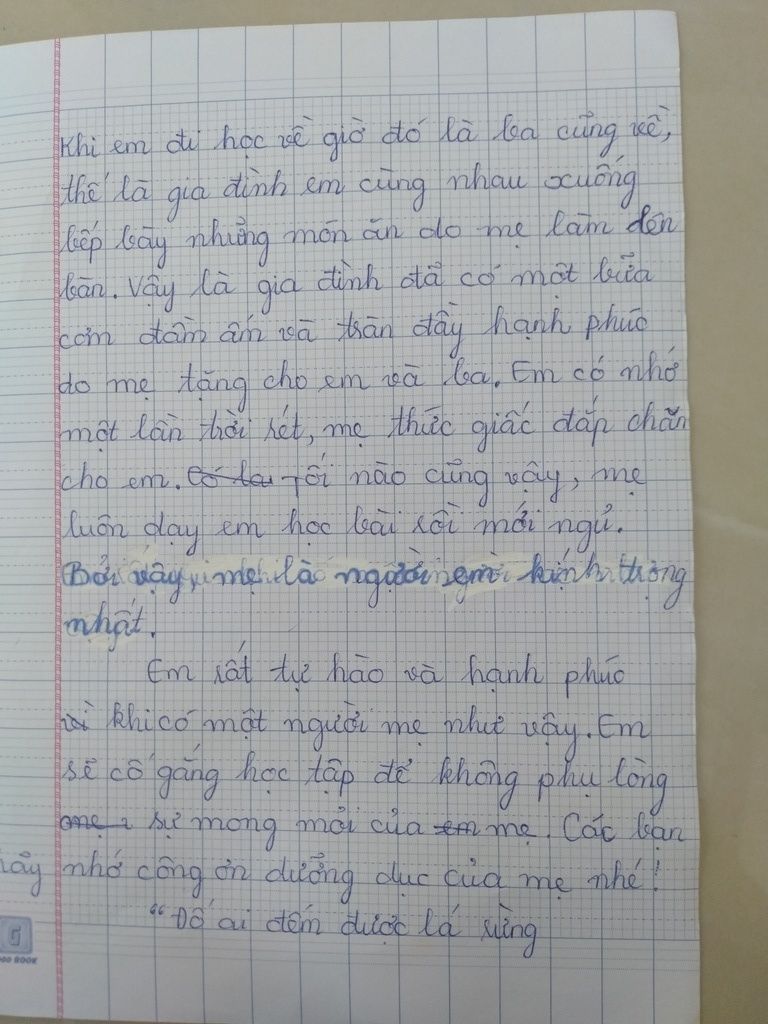 Khi em đi học về giờ đó là ba cũng về,
thế là gia đình em cùng nhau xuống
bếp bày những món ăn do mẹ làm đến
bàn. Vậy là gia đình đã có một bữa
cơm đầm ấm và tràn đầy hạnh phúc
do mẹ tặng cho em và ba. Em có nhớ
một lần trời rét, mẹ thức giấc đắp chăn
cho em. Tối nào cũng vậy, mẹ
luôn dạy em học bài rồi mới ngủ.
Bởi vậy, mẹ là người em kính trọng
nhất.
Em rất tự hào và hạnh phúc
vì khi có một người mẹ như vậy. Em
sẽ cố gắng học tập để không phụ lòng
sự mong mỏi của mẹ. Các bạn
hãy nhớ công ơn dưỡng dục của mẹ nhé!
"Đố ai đếm được lá rừng
BOOK